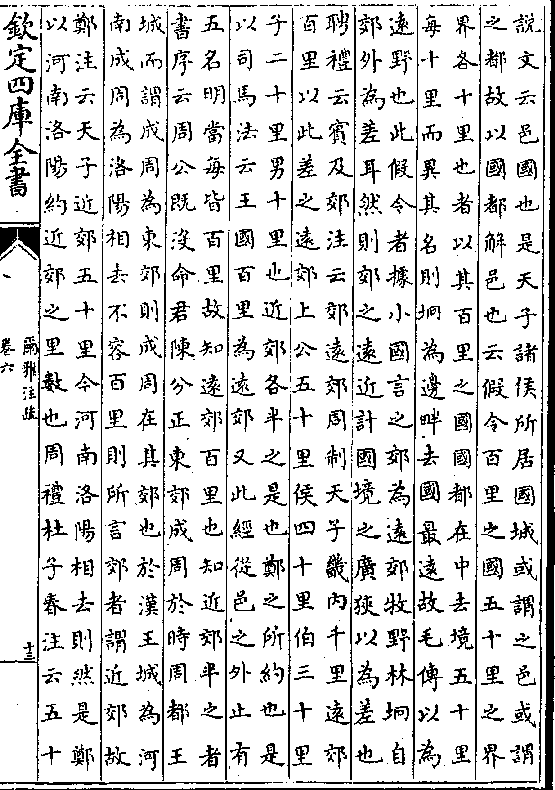 說文云邑國也是天子諸侯所居國城或謂之邑或謂
之都故以國都解邑也云假令百里之國五十里之界
界各十里也者以其百里之國國都在中去境五十里
每十里而異其名則坰為邊畔去國最遠故毛傳以為
遠野也此假令者據小國言之郊為遠郊牧野林坰自
郊外為差耳然則郊之遠近計國境之廣狹以為差也
聘禮云賔及郊注云郊遠郊周制天子畿内千里遠郊
百里以此差之遠郊上公五十里侯四十里伯三十里
子二十里男十里也近郊各半之是也鄭之所約也是
以司馬法云王國百里為遠郊又此經從邑之外止有
五名明當每皆百里故知遠郊百里也知近郊半之者
書序云周公既沒命君陳分正東郊成周於時周都王
城而謂成周為東郊則成周在其郊也於漢王城為河
南成周為洛陽相去不容百里則所言郊者謂近郊故
鄭注云天子近郊五十里今河南洛陽相去則然是鄭
以河南洛陽約近郊之里數也周禮杜子春注云五十
欽定四庫全書
爾雅注疏
卷六
十三